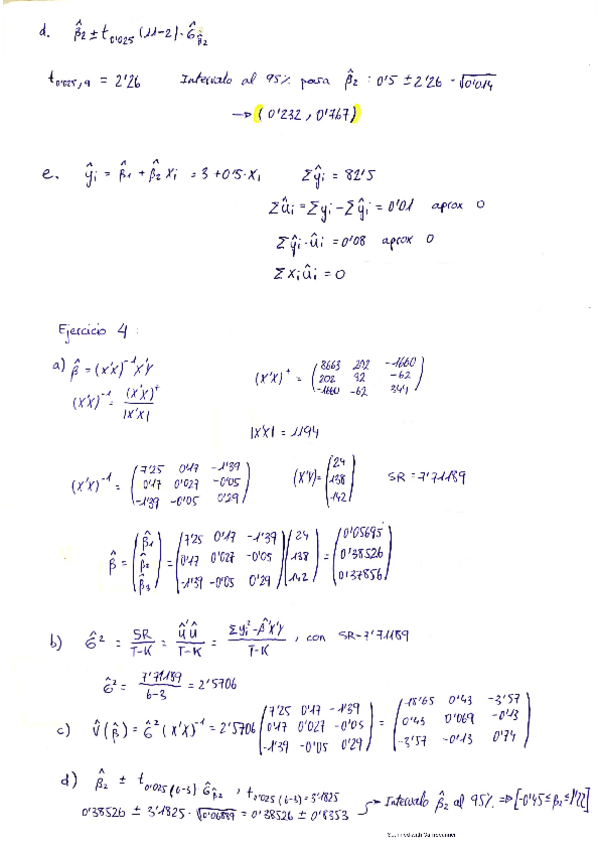 d. β̂₂ ± t₀'₀₂₅ (11-2) · σ̂_β̂₂
t₀'₀₂₅,₉ = 2'26 Intervalo al 95% para β̂₂ : 0'5 ± 2'26 · √0'014
→ (0'232, 0'767)
e. ŷᵢ = β̂₁ + β̂₂ Xᵢ = 3 + 0'5 · Xᵢ Σŷᵢ = 82'5
Σûᵢ = Σyᵢ - Σŷᵢ = 0'01 aprox 0
Σŷᵢ · ûᵢ = 0'08 aprox 0
Σxᵢûᵢ = 0
Ejercicio 4 :
a) β̂ = (X'X)⁻¹X'Y (X'X)⁺ = (8663 202 -1660
202 32 -62
-1660 -62 344)
(X'X)⁻¹ = (X'X)⁺ / |X'X|
|X'X| = 1194
(X'X)⁻¹ = (7'25 0'17 -1'39
0'17 0'027 -0'05
-1'39 -0'05 0'29) (X'Y) = (24
138
142) SR = 7'71189
β̂ = (β̂₁
β̂₂
β̂₃) = (7'25 0'17 -1'39
0'17 0'027 -0'05
-1'39 -0'05 0'29) (24
138
142) = (0'05695
0'38526
0'37856)
b) σ̂² = SR / T-K = û'û / T-K = Σyᵢ² - β̂'X'Y / T-K , con SR = 7'71189
σ̂² = 7'71189 / 6-3 = 2'5706
c) V̂(β̂) = σ̂² (X'X)⁻¹ = 2'5706 (7'25 0'17 -1'39
0'17 0'027 -0'05
-1'39 -0'05 0'29) = (18'65 0'43 -3'57
0'43 0'069 -0'13
-3'57 -0'13 0'74)
d) β̂₂ ± t₀'₀₂₅ (6-3) σ̂_β̂₂ , t₀'₀₂₅ (6-3) = 3'1825
0'38526 ± 3'1825 · √0'06889 = 0'38526 ± 0'8353 → Intervalo β̂₂ al 95% ⇒ [-0'45 ≤ β₂ ≤ 1'22]